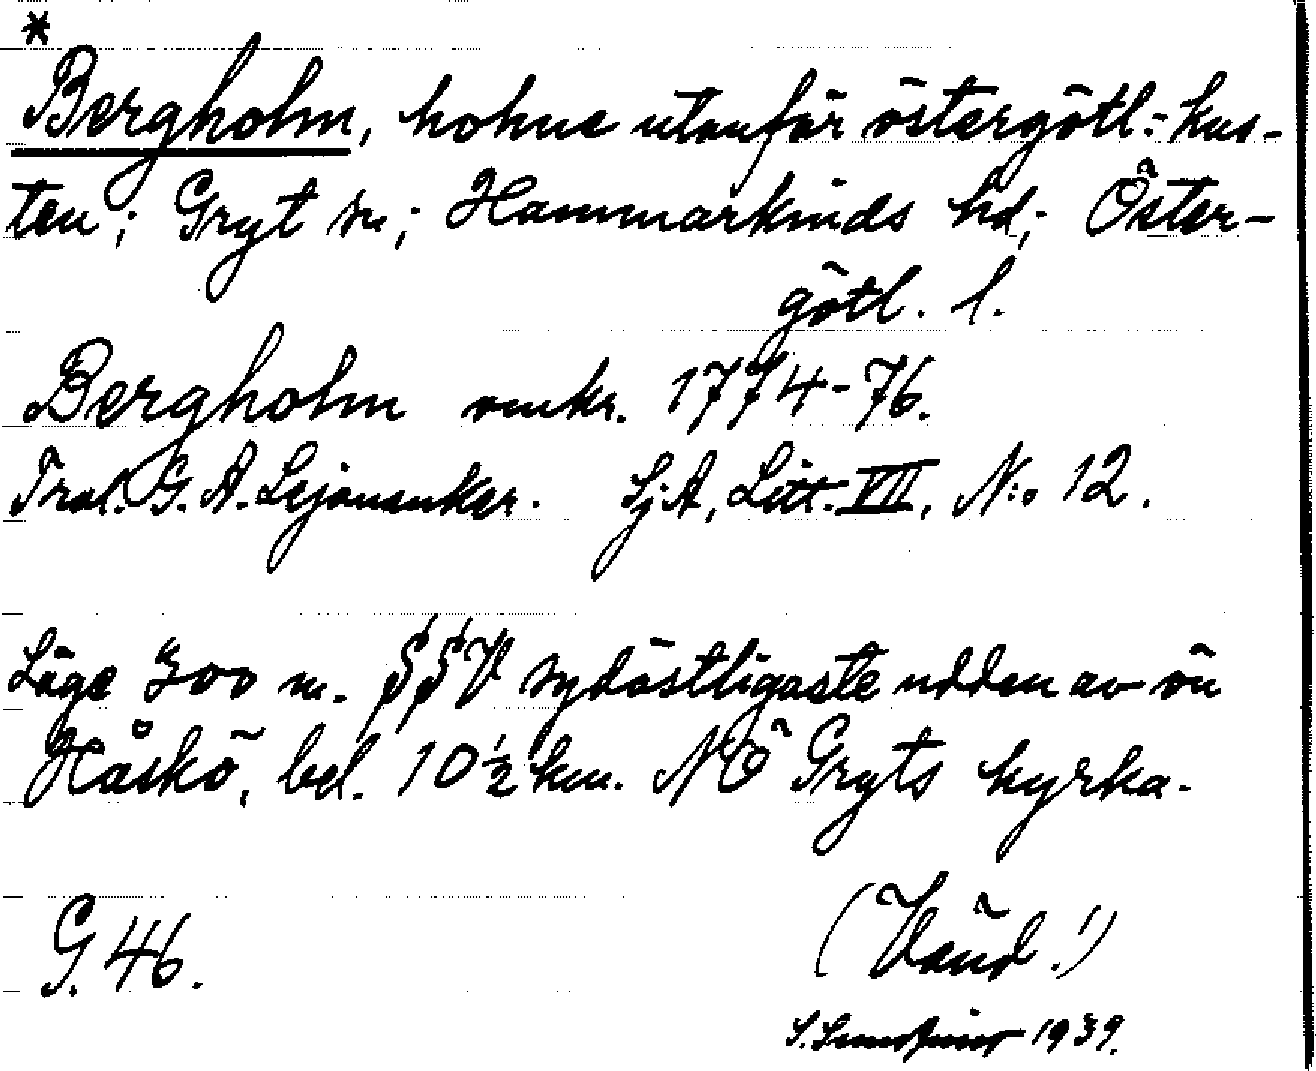 *
Bergholm, holme utanför östergötl.-kus-
ten; Gryt sn; Hammarkinds hd; Öster-
götl. l.
Bergholm omkr. 1774-76.
G. A. Lejonanker. Sj.A, Litt. VII, N:o 12.
Läge 300 m. SSV sydöstligaste udden av ön
Håskö, bel. 10 1/2 km. NÖ Gryts kyrka.
G. 46.
(Vänd!)
1939.